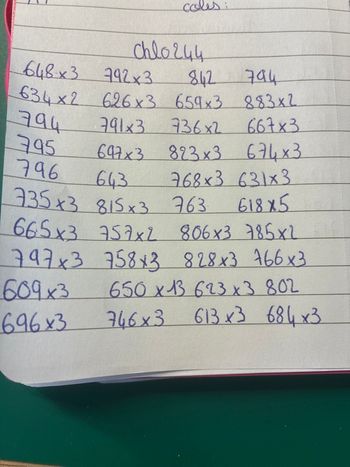 coles:
chlo244
648x3 792x3 842 794
634x2 626x3 659x3 883x2
794 791x3 736x2 667x3
795 697x3 823x3 674x3
796 643 768x3 631x3
735x3 815x3 763 618x5
665x3 757x2 806x3 785x2
797x3 758x3 828x3 766x3
609x3 650x13 623x3 802
696x3 746x3 613x3 684x3